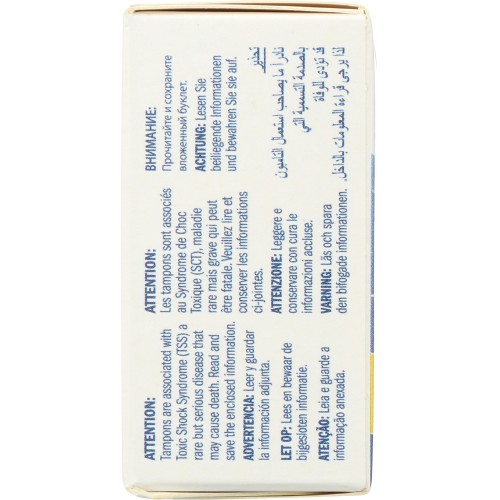 ATTENTION:
Tampons are associated with
Toxic Shock Syndrome (TSS) a
rare but serious disease that
may cause death. Read and
save the enclosed information.
ADVERTENCIA: Leer y guardar
la información adjunta.
LET OP: Lees en bewaar de
bijgesloten informatie.
ATENÇÃO: Leia e guarde a
informação anexada.
ATTENTION:
Les tampons sont associés
au Syndrome de Choc
Toxique (SCT), maladie
rare mais grave qui peut
être fatale. Veuillez lire et
conserver les informations
ci-jointes.
ATTENZIONE: Leggere e
conservare con cura le
informazioni accluse.
VARNING: Läs och spara
den bifogade informationen.
ВНИМАНИЕ:
Прочитайте и сохраните
вложенный буклет.
ACHTUNG: Lesen Sie
beiliegende Informationen
und bewahren Sie sie auf.
تحذير
نادراً ما يصاحب استعمال التامبون
بالصدمة التسممية التي
قد تؤدى للوفاة
لذا يرجى قراءة المعلومات بالداخل.